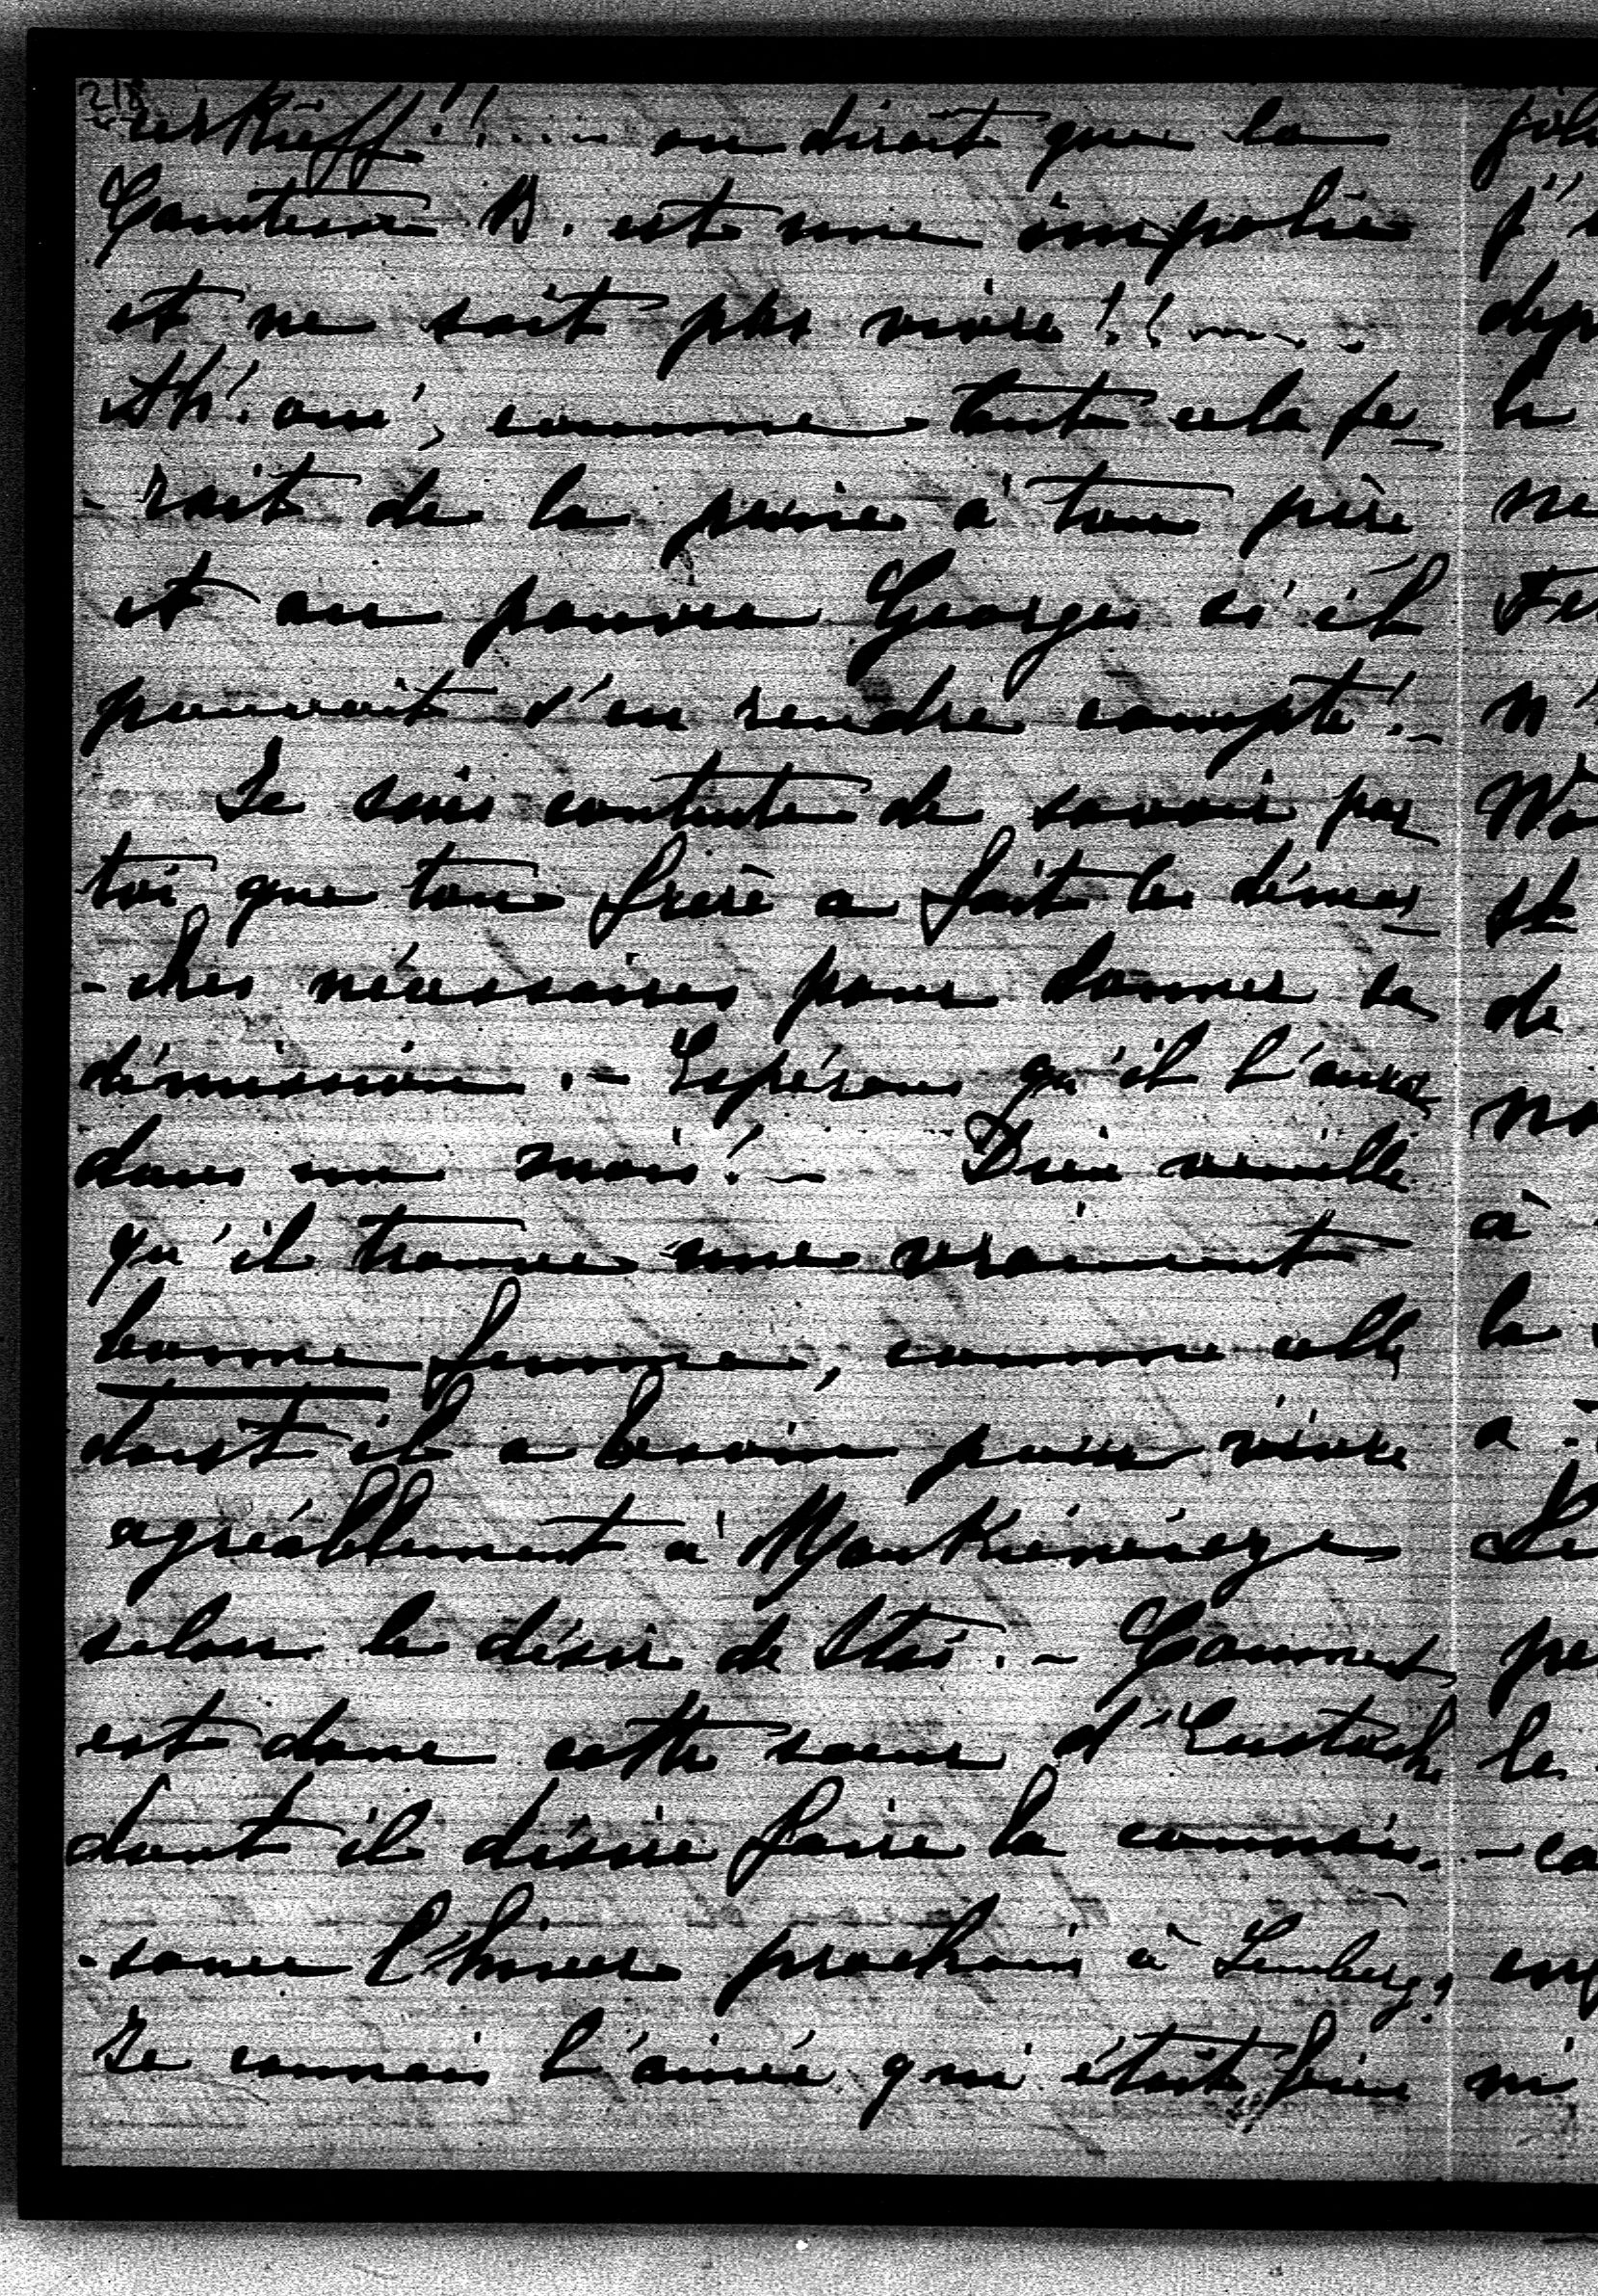 218
-erskieff!!.... on dirait que la
Comtesse B. est une impolie
et ne sait pas vivre!!....
Ah! oui, comme tout cela fe-
-rait de la peine à ton père
et au pauvre Georges s'il
pouvait s'en rendre compte!-
Je suis contente de savoir par
toi que ton frère a fait les démar-
-ches nécessaires pour donner sa
démission.- Espérons qu'il l'aura
dans un mois!- Dieu veuille
qu'il trouve une vraiment
bonne femme, comme celle
dont il a besoin pour vivre
agréablement à
selon le désir de Stas.- Comment
est donc cette sœur d'Eustache
dont il désire faire la connais-
-sance l'hiver prochain à Lemberg?
Je connais l'ainée qui était